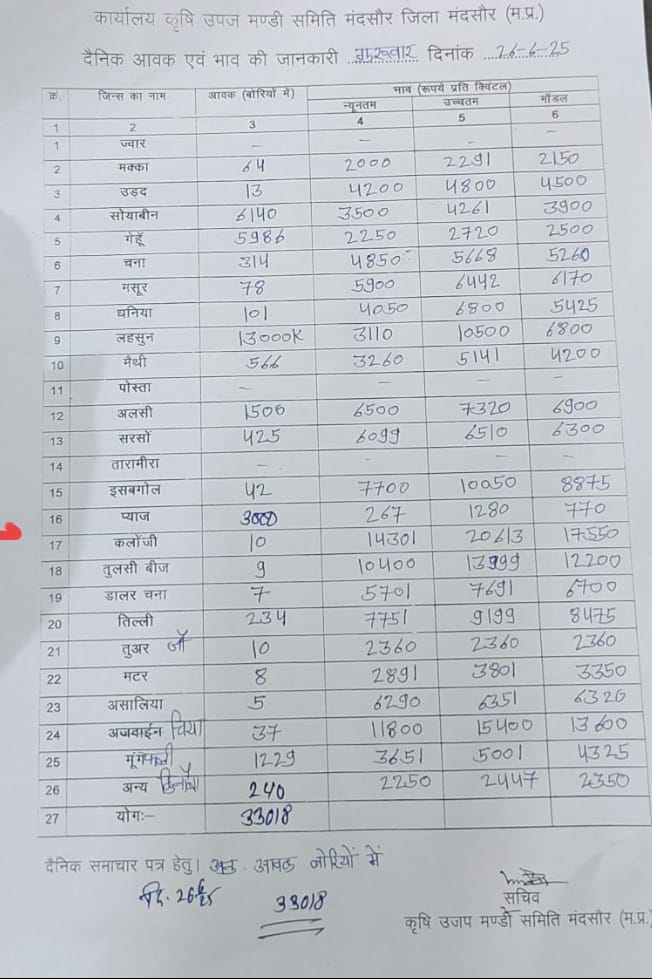 कार्यालय कृषि उपज मण्डी समिति मंदसौर जिला मंदसौर (म.प्र.)
दैनिक आवक एवं भाव की जानकारी ...गुरूवार... दिनांक ...26-6-25
क्र. जिन्स का नाम आवक (बोरियों में) भाव (रूपये प्रति क्विंटल)
न्यूनतम उच्चतम मॉडल
1 2 3 4 5 6
1 ज्वार - - - -
2 मक्का 64 2000 2291 2150
3 उड़द 13 4200 4800 4500
4 सोयाबीन 6140 3500 4261 3900
5 गेहूँ 5986 2250 2720 2500
6 चना 314 4850 5668 5260
7 मसूर 78 5900 6442 6170
8 धनिया 101 4050 6800 5425
9 लहसुन 13000K 3110 10500 6800
10 मैथी 566 3260 5141 4200
11 पोस्ता - - - -
12 अलसी 1506 6500 7320 6900
13 सरसों 425 6099 6510 6300
14 तारामीरा - - - -
15 इसबगोल 42 7700 10050 8875
16 प्याज 3000 267 1280 770
17 कलोंजी 10 14301 20613 17550
18 तुलसी बीज 9 10400 13999 12200
19 डालर चना 7 5701 7691 6700
20 तिल्ली 234 7751 9199 8475
21 तुअर जौ 10 2360 2360 2360
22 मटर 8 2891 3801 3350
23 असालिया 5 6290 6351 6320
24 अजवाईन चिया 37 11800 15400 13600
25 मूंगफली 1229 3651 5001 4325
26 अन्य 240 2250 2447 2350
27 योगः— 33018
दैनिक समाचार पत्र हेतु। आवक बोरियों में
दि. 26/6/25 33018
सचिव
कृषि उजप मण्डी समिति मंदसौर (म.प्र.)